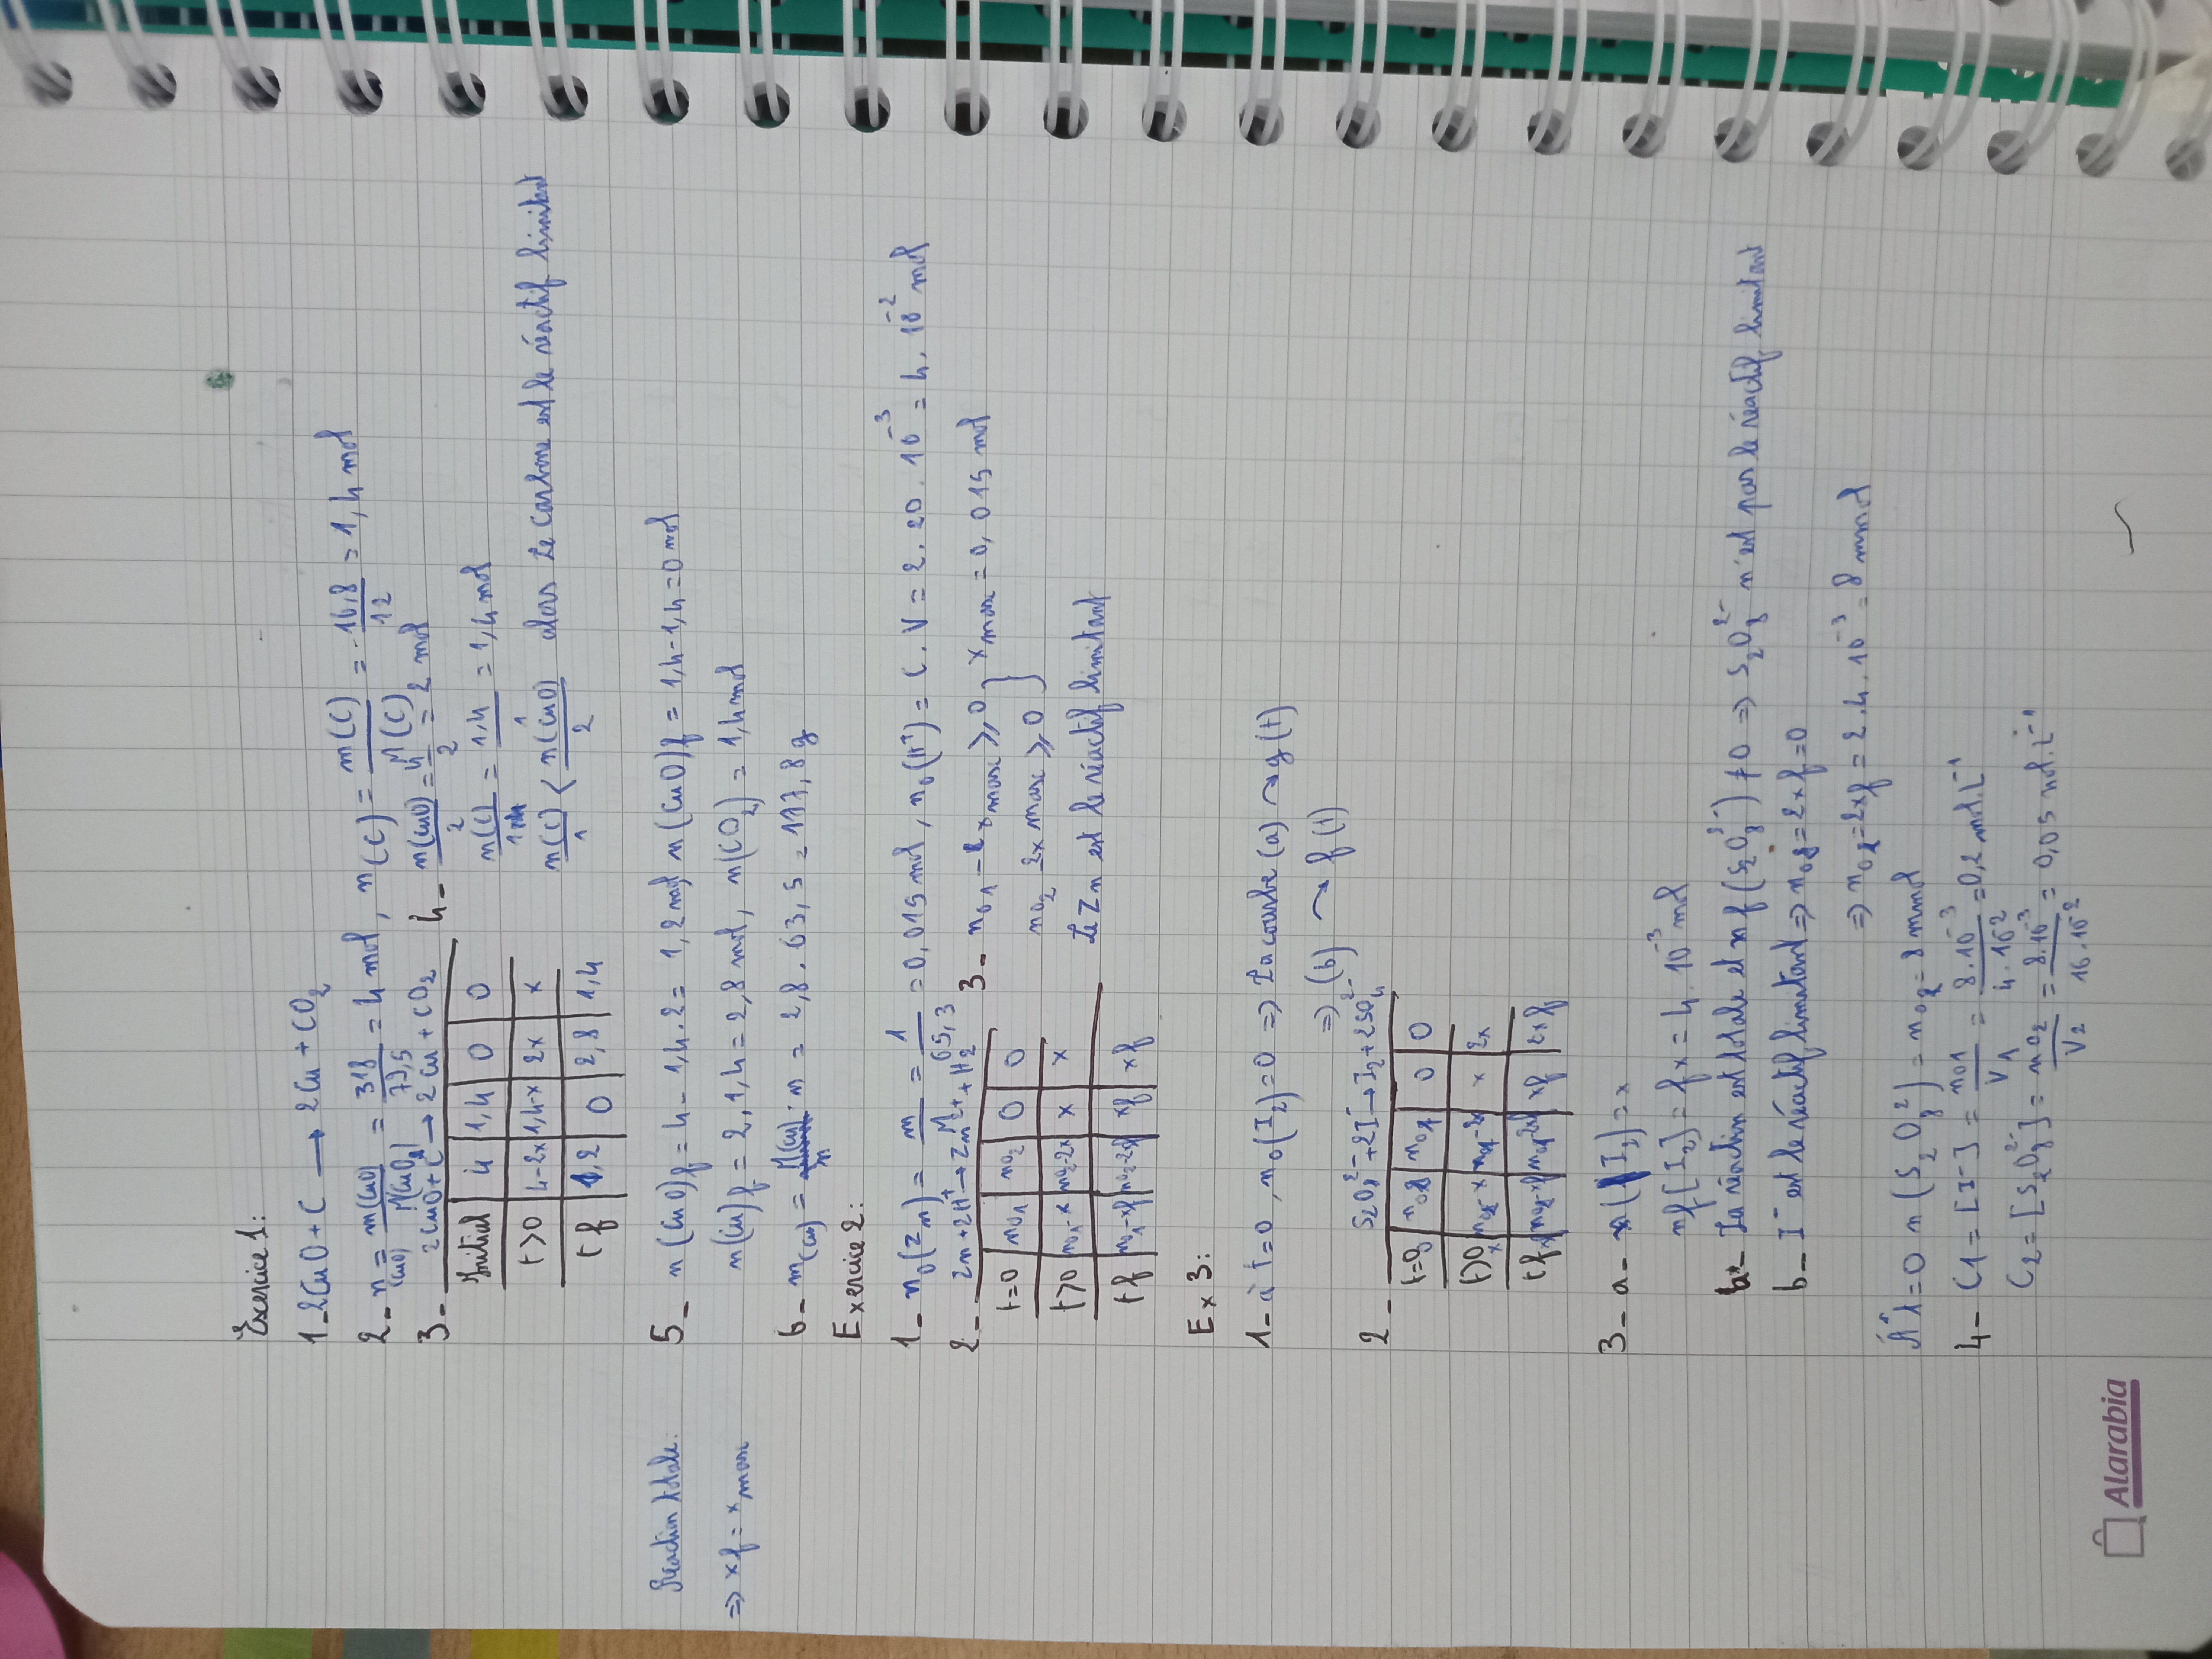 Exercice 1:
1_ 2CuO + C ⟶ 2Cu + CO2
2_ n(CuO) = m(CuO)/M(CuO) = 318/79,5 = 4 mol, n(C) = m(C)/M(C) = 16,8/12 = 1,4 mol
3_ 2CuO + C → 2Cu + CO2
Initial | 4 | 1,4 | 0 | 0
t>0 | 4-2x | 1,4-x | 2x | x
tf | 1,2 | 0 | 2,8 | 1,4
4_ n(CuO)/2 = 4/2 = 2 mol
n(C)/1 = 1,4/1 = 1,4 mol
n(C)/1 < n(CuO)/2 alors le carbone est le réactif limitant
Reaction totale:
=> xf = xmax
5_ n(CuO)f = 4 - 1,4.2 = 1,2 mol n(CuO)f = 1,4-1,4 = 0 mol
n(Cu)f = 2.1,4 = 2,8 mol, n(CO2) = 1,4 mol
6_ m(Cu) = M(Cu).n = 2,8.63,5 = 177,8 g
Exercice 2:
1_ n0(Zn) = m/M = 1/65,3 = 0,015 mol, n0(H+) = C.V = 2.20.10^-3 = 4.10^-2 mol
2_ Zn + 2H+ → Zn2+ + H2
t=0 | n01 | n02 | 0 | 0
t>0 | n01-x | n02-2x | x | x
tf | n01-xf | n02-2xf | xf | xf
3_ n01 - xmax ≥ 0 } xmax = 0,015 mol
n02 - 2xmax ≥ 0
Le Zn est le réactif limitant
Ex 3:
1_ à t=0, n0(I2)=0 => La courbe (a) → g(t)
=> (b) → f(t)
2_ S2O8^2- + 2I- → I2 + 2SO4^2-
t=0 | n02 | n01 | 0 | 0
t>0 | n02-x | n01-2x | x | 2x
tf | n02-xf | n01-2xf | xf | 2xf
3_ a_ n(I2) = x
nf[I2] = fx = 4.10^-3 mol
b_ La réaction est totale et nf(S2O8^2-) ≠ 0 => S2O8^2- n'est pas le réactif limitant
b_ I- est le réactif limitant => n01 = 2xf = 0
=> n01 = 2xf = 2.4.10^-3 = 8 mmol
À t=0 n(S2O8^2-) = n02 = 8 mmol
4_ C1 = [I-] = n01/V1 = 8.10^-3/4.10^-2 = 0,2 mol.L^-1
C2 = [S2O8^2-] = n02/V2 = 8.10^-3/16.10^-2 = 0,05 mol.L^-1
Alarabia